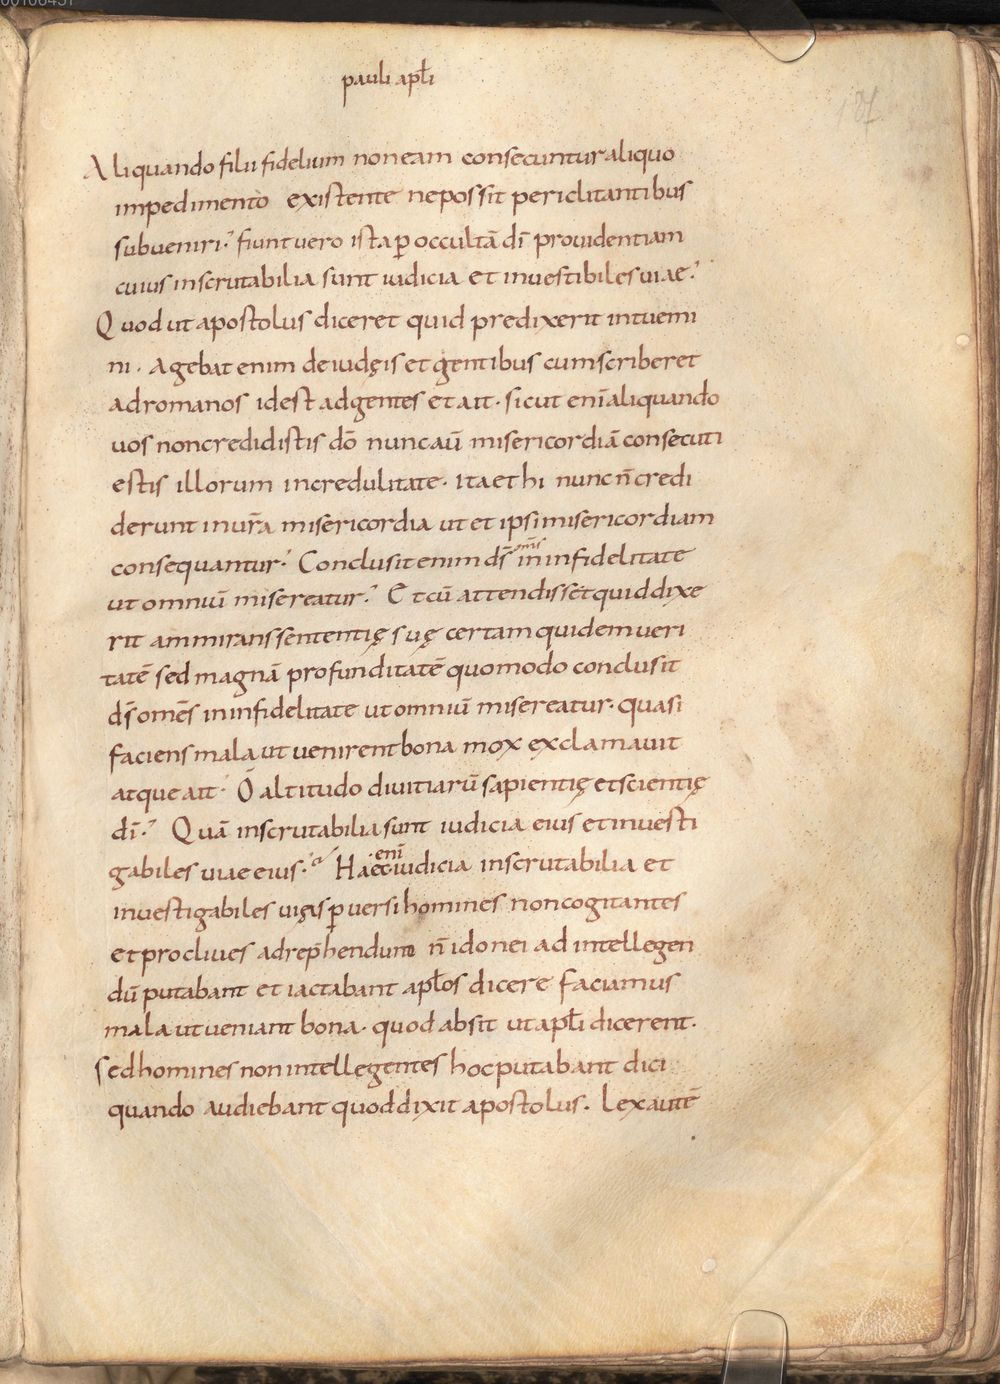 00106457
pauli apl̅i
187
Aliquando filii fidelium non eam consecuntur aliquo
impedimento existente ne possit periclitantibus
subveniri. fiunt uero ista p̱ occultā dī prouidentiam
cuius inscrutabilia sunt iudicia et investibiles uiae.
Quod ut apostolus diceret quid predixerit intuemi
ni. Agebat enim de iudęis et gentibus cum scriberet
ad romanos id est ad gentes et ait. sicut enī aliquando
uos non credidistis dō nunc aū misericordiā consecuti
estis illorum incredulitate. ita et hi nunc n̄ credi
derunt in ur̄a misericordia ut et ipsi misericordiam
consequantur. Conclusit enim ds̄ om̄s in infidelitate
ut omniū misereatur. Et cū attendisset quid dixe
rit ammirans sententię suę certam quidem ueri
tatē sed magnā profunditatē quomodo conclusit
ds̄ omēs in infidelitate ut omniū misereatur. quasi
faciens mala ut uenirent bona mox exclamauit
atque ait. O altitudo diuitiarū sapientię et scientię
dī. Quā inscrutabilia sunt iudicia eius et inuesti
gabiles uiae eius. Haec enī iudicia inscrutabilia et
inuestigabiles uięs p̱uersi homines non cogitantes
et procliues ad rep̄hendum n̄ idonei ad intellegen
dū putabant et iactabant apl̅os dicere faciamus
mala ut ueniant bona. quod absit ut apl̅i dicerent.
sed homines non intellegentes hoc putabant dici
quando audiebant quod dixit apostolus. Lex autē